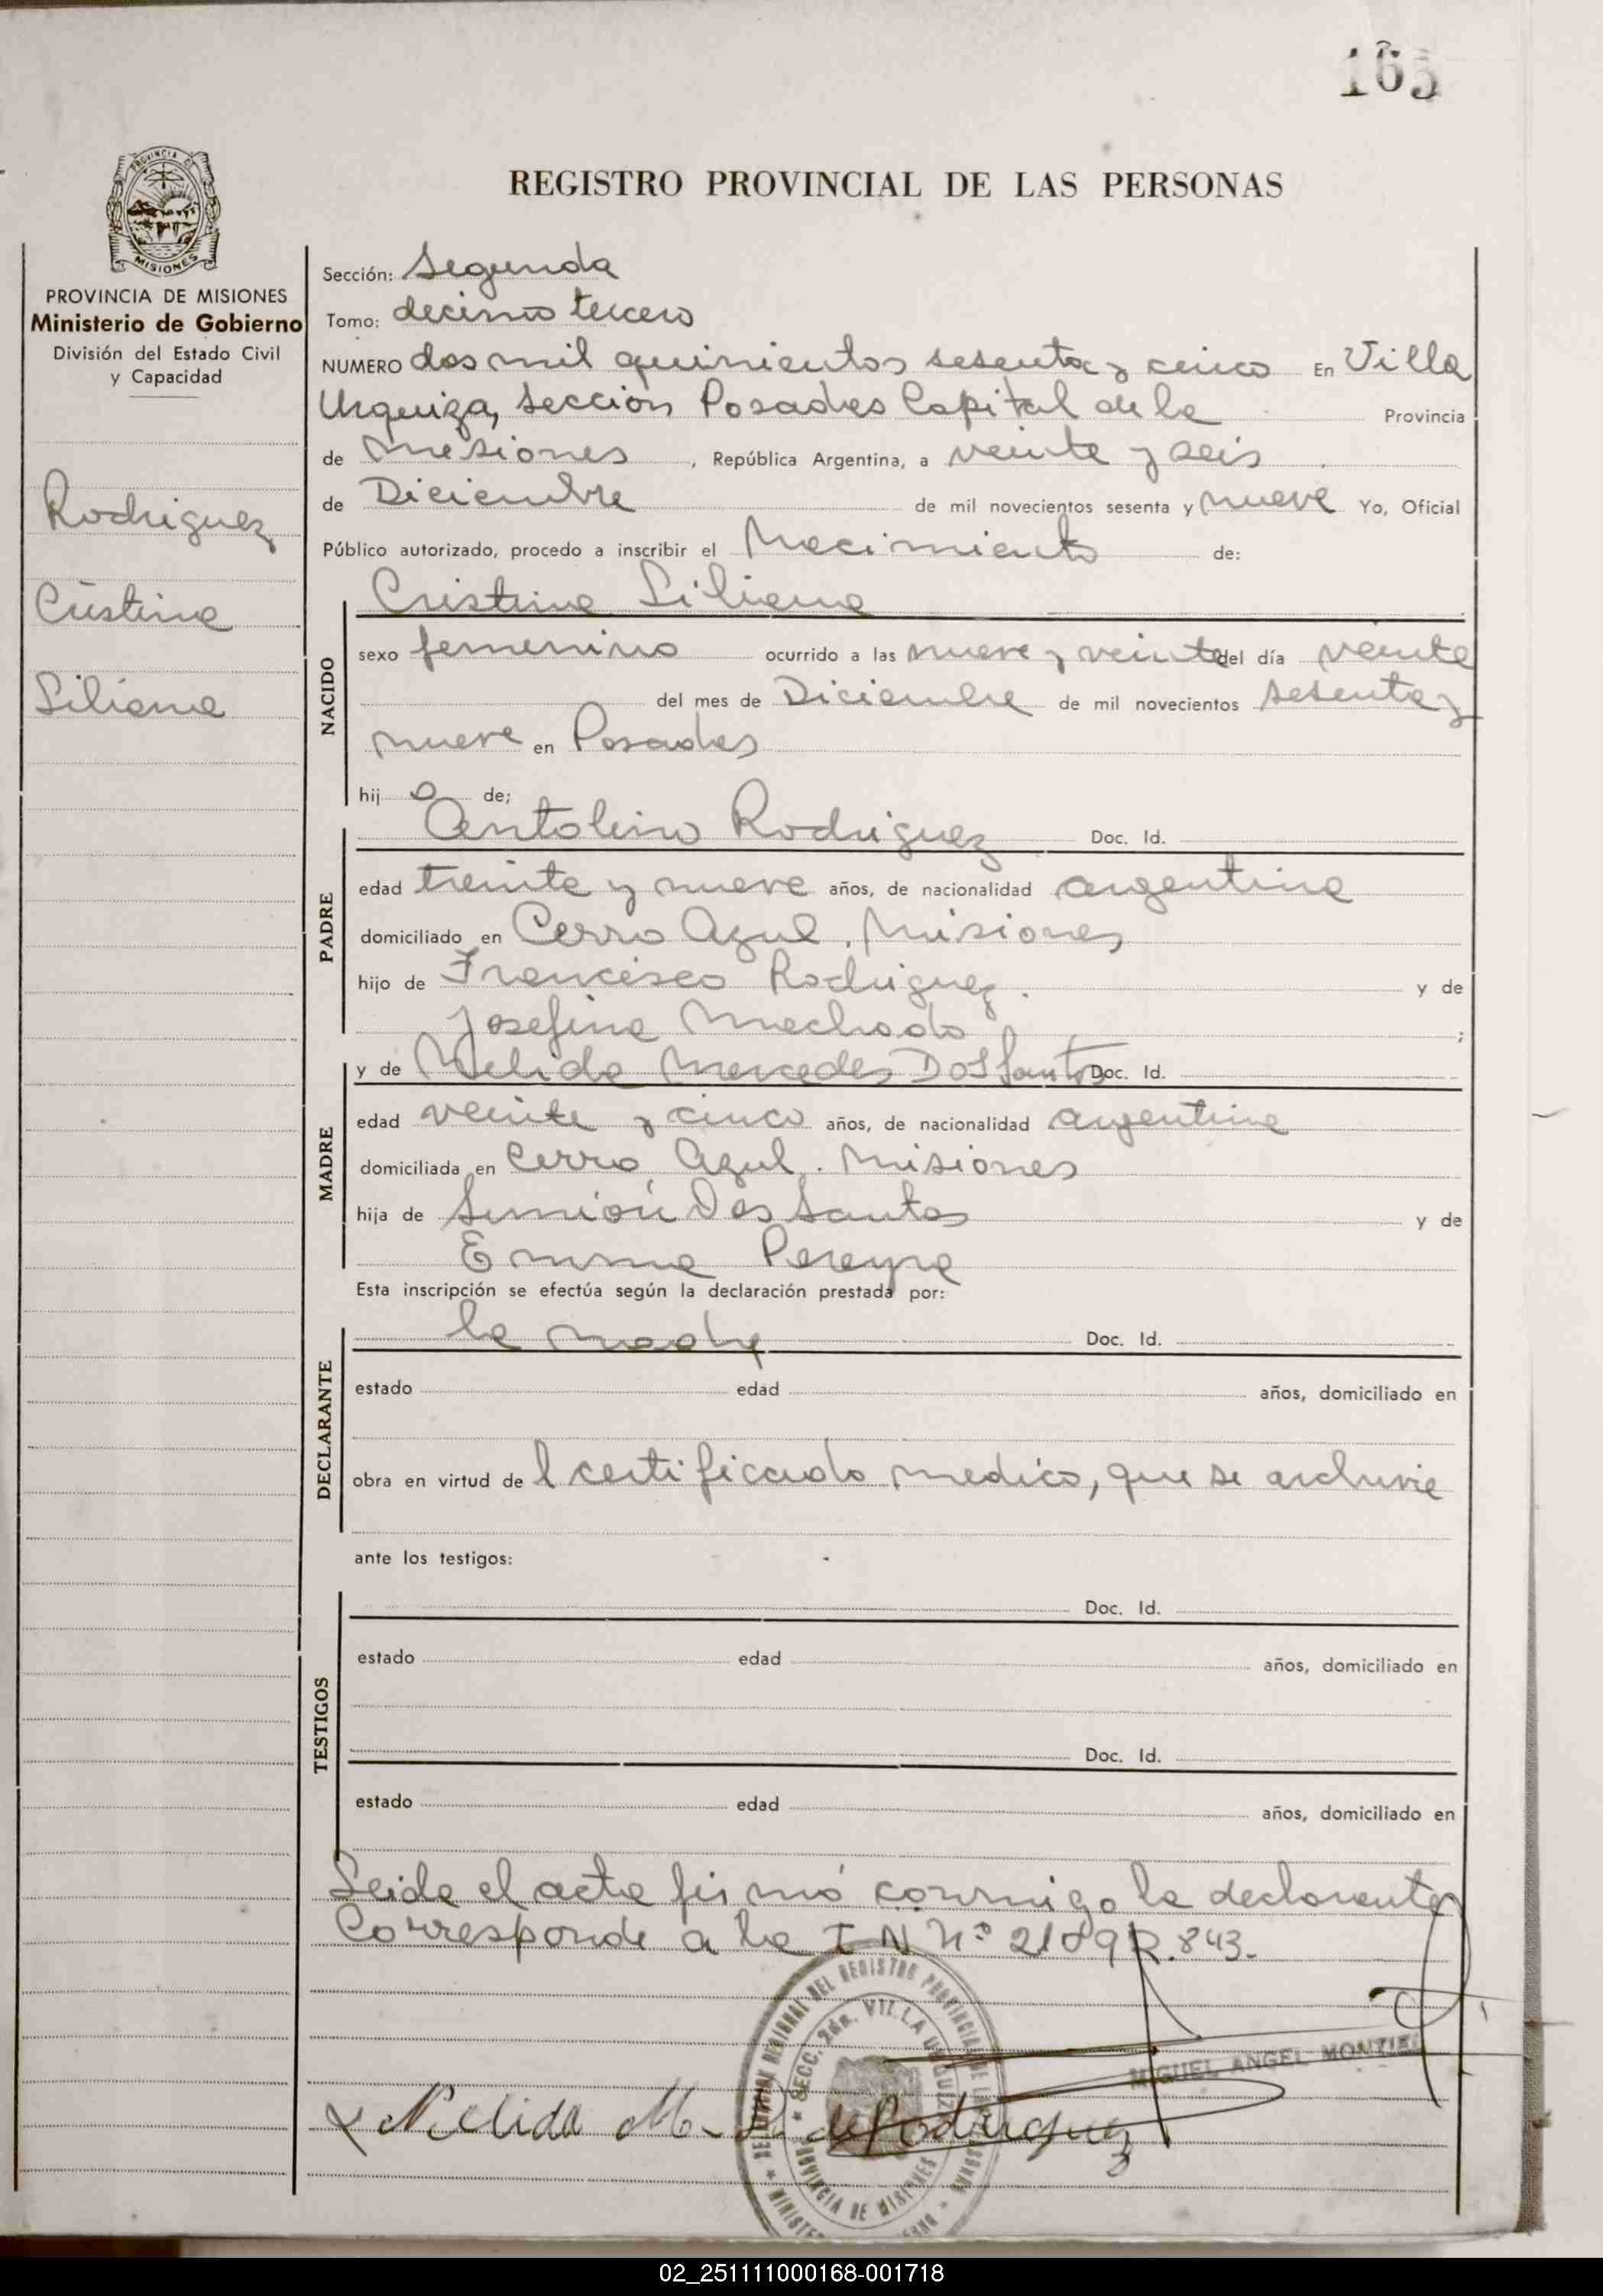 165
REGISTRO PROVINCIAL DE LAS PERSONAS
PROVINCIA DE MISIONES
MISIONES
PROVINCIA DE MISIONES
Ministerio de Gobierno
División del Estado Civil
y Capacidad
Rodriguez
Cristina
Liliana
Sección: Segunda
Tomo: decimo tercero
NUMERO dos mil quinientos sesenta y cinco En Villa
Urquiza, Sección Posadas Capital de la Provincia
de Misiones, República Argentina, a veinte y seis
de Diciembre de mil novecientos sesenta y nueve Yo, Oficial
Público autorizado, procedo a inscribir el Nacimiento de:
NACIDO
Cristina Liliana
sexo femenino ocurrido a las nueve y veinte del día veinte
del mes de Diciembre de mil novecientos sesenta y
nueve en Posadas
hij a de;
PADRE
Antolino Rodriguez Doc. Id.
edad treinta y nueve años, de nacionalidad argentina
domiciliado en Cerro Azul. Misiones
hijo de Francisco Rodriguez. y de
Josefina Machado ;
MADRE
y de Nelida Mercedes Dos Santos Doc. Id.
edad veinte y cinco años, de nacionalidad argentina
domiciliada en Cerro Azul. Misiones
hija de Simión Dos Santos y de
Emma Pereyra
Esta inscripción se efectúa según la declaración prestada por:
DECLARANTE
la madre Doc. Id.
estado edad años, domiciliado en
obra en virtud de l certificado medico, que se archivie
ante los testigos:
TESTIGOS
Doc. Id.
estado edad años, domiciliado en
Doc. Id.
estado edad años, domiciliado en
Leida el acta firmó conmigo la declarante
Corresponde a la I N Nº 21092.843.-
SECC. 2da. VILLA URQUIZA
PROVINCIA DE MISIONES
MIGUEL ANGEL MONTIEL
x Nelida M. de Rodriguez
02_251111000168-001718